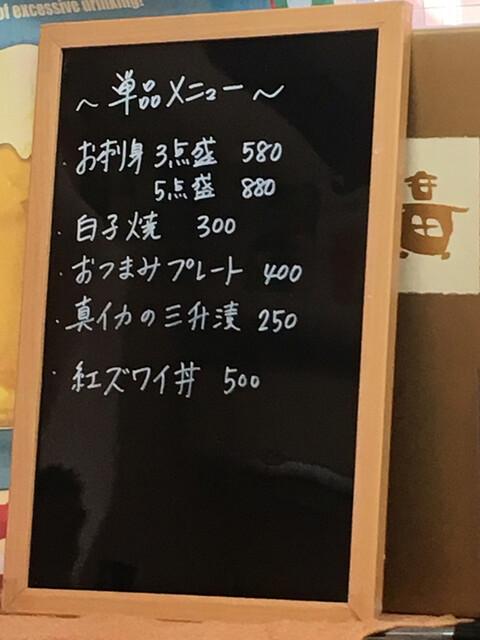 of excessive drinking!
～単品メニュー～
・お刺身 3点盛 580
5点盛 880
・白子焼 300
・おつまみプレート 400
・真イカの三升漬 250
・紅ズワイ丼 500